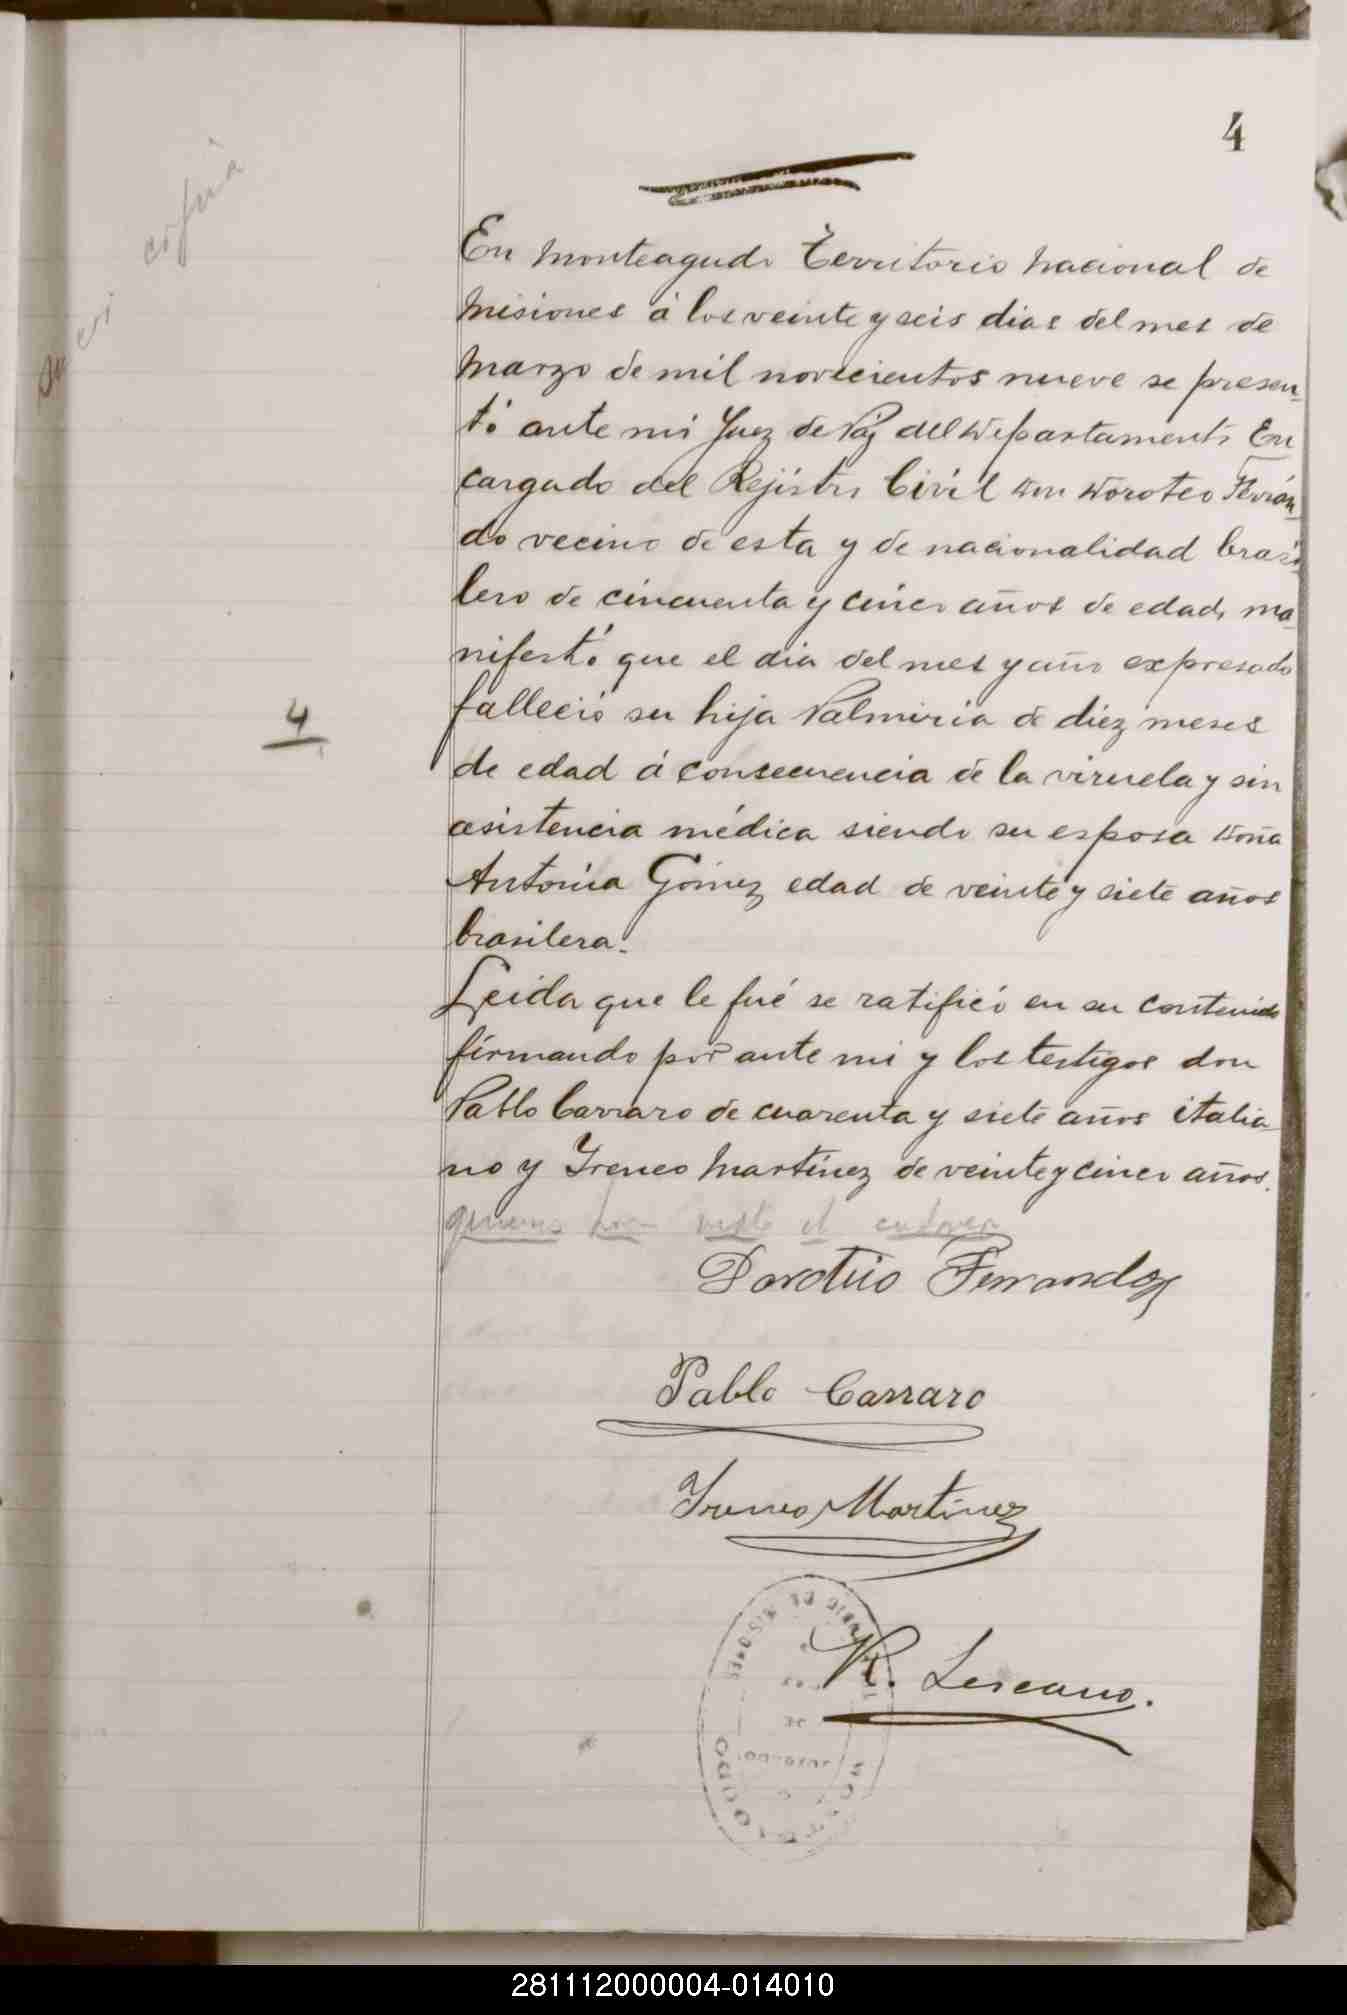 4
copia
En Monteagudo Territorio Nacional de
Misiones á los veinte y seis dias del mes de
Marzo de mil novecientos nueve se presen-
tó ante mi Juez de Paz del Departamento En
cargado del Rejistro Civil Don Doroteo Ferrán-
do vecino de esta y de nacionalidad brasi-
lero de cincuenta y cinco años de edad, ma-
nifestó que el dia del mes y año expresado
falleció su hija Palmiria de diez meses
4
de edad á consecuencia de la viruela y sin
asistencia médica siendo su esposa Doña
Antonia Gómez edad de veinte y siete años
brasilera.
Leida que le fué se ratificó en su contenido
firmando por ante mi y los testigos don
Pablo Carraro de cuarenta y siete años italia-
no y Ireneo Martínez de veinte y cinco años.
quienes han visto el cadaver
Dorotiio Ferrando
Pablo Carraro
Ireneo Martinez
R. Lescano.
281112000004-014010